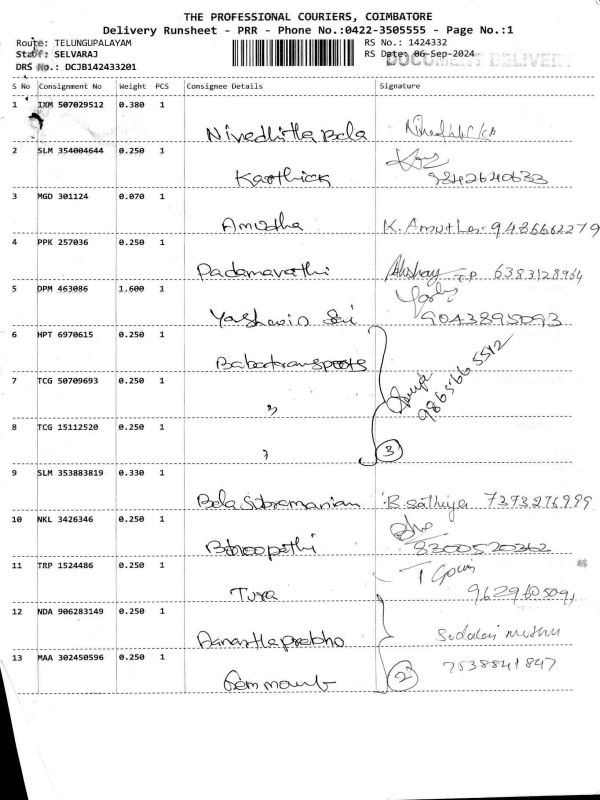 THE PROFESSIONAL COURIERS, COIMBATORE
Delivery Runsheet - PRR - Phone No.:0422-3505555 - Page No.:1
Route: TELUNGUPALAYAM RS No.: 1424332
Staff: SELVARAJ RS Date: 06-Sep-2024
DOCUMENT DELIVERY
DRS No.: DCJB142433201
S No Consignment No Weight PCS Consignee Details Signature
1 IXM 507029512 0.380 1
Nivedhitha Bala
2 SLM 354004644 0.250 1
Karthick 9842640633
3 MGD 301124 0.070 1
Amudha K. Amutha 9486662279
4 PPK 257036 0.250 1
Padamavathi Akshay 6383128964
5 DPM 463086 1.600 1
Yashwin Sri 9043895093
6 HPT 6970615 0.250 1
9865665512
7 TCG 50709693 0.250 1
"
8 TCG 15112520 0.250 1
" 3
9 SLM 353883819 0.330 1
Bala Subramanian B. Sathiya 7373276999
10 NKL 3426346 0.250 1
Bhoopathi 8300520362
11 TRP 1524486 0.250 1
9629605091
12 NDA 906283149 0.250 1
Anantha prabho Sudalai muthu
13 MAA 302450596 0.250 1
7538841847
2